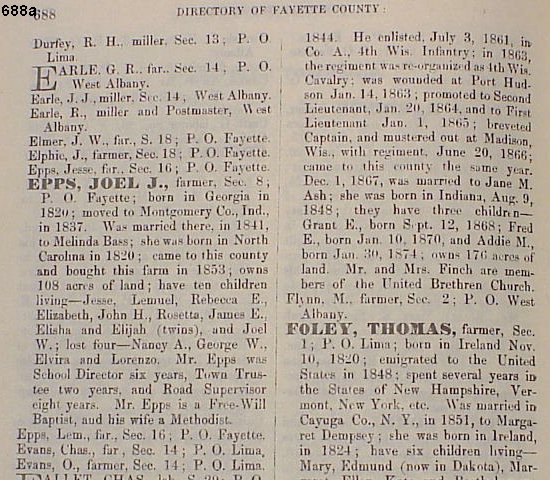 688a
688 DIRECTORY OF FAYETTE COUNTY:
Durfey, R. H., miller, Sec. 13; P. O.
Lima.
EARLE, G. R., far., Sec. 14; P. O.
West Albany.
Earle, J. J., miller, Sec. 14; West Albany.
Earle, R., miller and Postmaster, West
Albany.
Elmer, J. W., far., S. 18; P. O. Fayette.
Elphic, J., farmer, Sec. 18; P. O. Fayette.
Epps, Jesse, far., Sec. 16; P. O. Fayette.
EPPS, JOEL J., farmer, Sec. 8;
P. O. Fayette; born in Georgia in
1820; moved to Montgomery Co., Ind.,
in 1837. Was married there, in 1841,
to Melinda Bass; she was born in North
Carolina in 1820; came to this county
and bought this farm in 1853; owns
108 acres of land; have ten children
living—Jesse, Lemuel, Rebecca E.,
Elizabeth, John H., Rosetta, James E.,
Elisha and Elijah (twins), and Joel
W.; lost four—Nancy A., George W.,
Elvira and Lorenzo. Mr. Epps was
School Director six years, Town Trus-
tee two years, and Road Supervisor
eight years. Mr. Epps is a Free-Will
Baptist, and his wife a Methodist.
Epps, Lem., far., Sec. 16; P. O. Fayette.
Evans, Chas., far., Sec. 14; P. O. Lima.
Evans, O., farmer, Sec. 14; P. O. Lima.
1844. He enlisted, July 3, 1861, in
Co. A., 4th Wis. Infantry; in 1863,
the regiment was re-organized as 4th Wis.
Cavalry; was wounded at Port Hud-
son Jan. 14, 1863; promoted to Second
Lieutenant, Jan. 20, 1864, and to First
Lieutenant, Jan. 1, 1865; breveted
Captain, and mustered out at Madison,
Wis., with regiment, June 20, 1866;
came to this county the same year.
Dec. 1, 1867, was married to Jane M.
Ash; she was born in Indiana, Aug. 9,
1848; they have three children—
Grant E., born Sept. 12, 1868; Fred
E., born Jan. 10, 1870, and Addie M.,
born Jan. 30, 1874; owns 176 acres of
land. Mr. and Mrs. Finch are mem-
bers of the United Brethren Church.
Flynn, M., farmer, Sec. 2; P. O. West
Albany.
FOLEY, THOMAS, farmer, Sec.
1; P. O. Lima; born in Ireland Nov.
10, 1820; emigrated to the United
States in 1848; spent several years in
the States of New Hampshire, Ver-
mont, New York, etc. Was married in
Cayuga Co., N. Y., in 1851, to Marga-
ret Dempsey; she was born in Ireland,
in 1824; have six children living—
Mary, Edmund (now in Dakota), Mar-